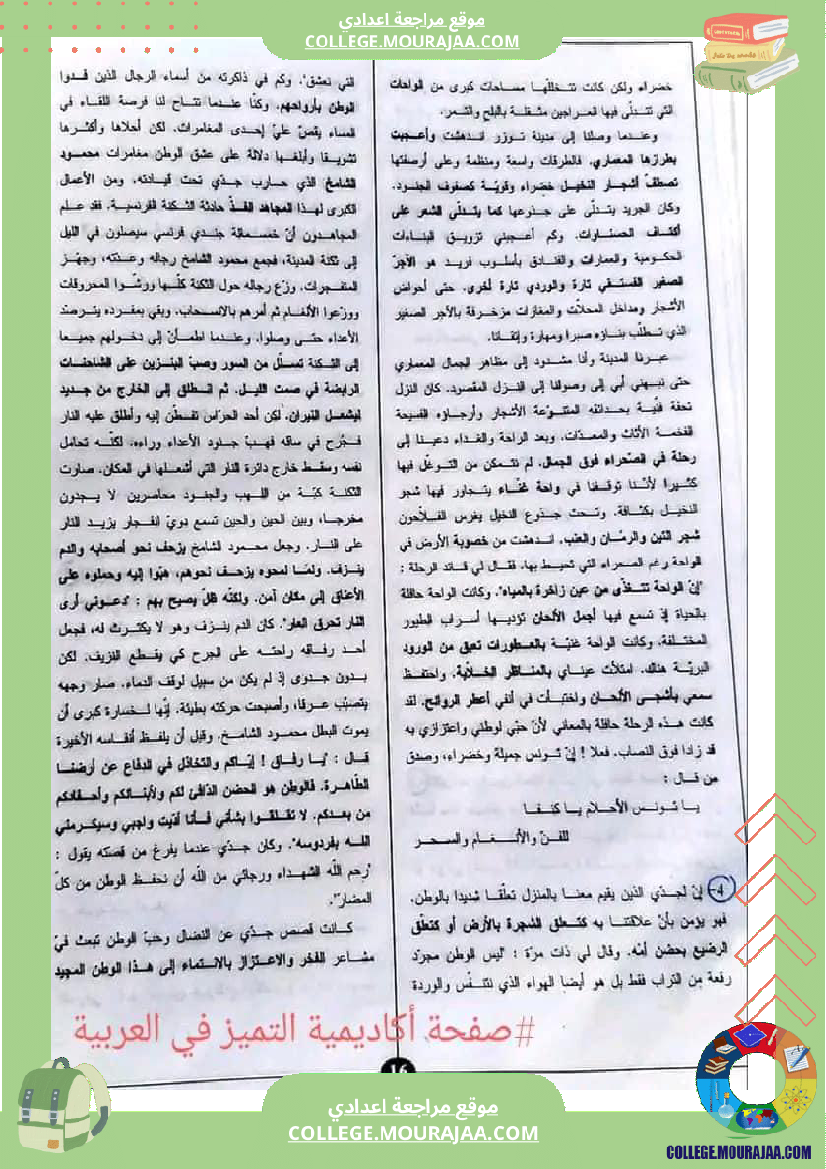 موقع مراجعة اعدادي
COLLEGE.MOURAJAA.COM
خضراء ولكن كانت تتخللها مساحات كبرى من الواحات
التي تتدلّى فيها لعراجين مثقلة بالبلح والتمر.
وعندما وصلنا إلى مدينة توزر اندهشت وأعجبت
بطرازها المعماري. فالطرقات واسعة ومنظمة وعلى أرصفتها
تصطفّ أشجار النخيل خضراء وقويّة كصفوف الجنود.
وكان الجريد يتدلّى على جذوعها كما يتدلّى الشعر على
أكتاف الحسناوات. وكم أعجبني تزويق البناءات
الحكومية والعمارات والفنادق بأسلوب فريد هو الآجرّ
الصغير الفستقي تارة والوردي تارة أخرى. حتى أحواض
الأشجار ومداخل المحلّات والمغازات مزخرفة بالآجر الصغير
الذي تطلّب بناؤه صبرا ومهارة وإتقانا.
عبرنا المدينة وأنا مشدود إلى مظاهر الجمال المعماري
حتى نبهني أبي إلى وصولنا إلى النزل المقصود. كان النزل
تحفة فنّية بحدائقه المتنوّعة الأشجار وأرجاؤه الفسيحة
الفخمة الأثاث والمعدّات. وبعد الراحة والغداء دعينا إلى
رحلة في الصّحراء فوق الجمال. لم نتمكن من التوغّل فيها
كثيرا لأنّنا توقفنا في واحة غنّاء يتجاور فيها شجر
النخيل بكثافة. وتحت جذوع النخيل يغرس الفلّاحون
شجر التين والرمّان والعنب. اندهشت من خصوبة الأرض في
الواحة رغم الصحراء التي تحيط بها. فقال لي قائد الرحلة :
"إنّ الواحة تتغذّى من عين زاخرة بالمياه". وكانت الواحة حافلة
بالحياة إذ تسمع فيها أجمل الألحان تؤديها أسراب الطيور
المختلفة. وكانت الواحة غنيّة بالعطورات تعبق من الورود
البريّة هناك. امتلأت عيناي بالمناظر الخلّابة. واحتفظ
سمعي بأشجى الألحان واختبأت في أنفي أعطر الروائح. لقد
كانت هذه الرحلة حافلة بالمعاني لأنّ حبّي لوطني واعتزازي به
قد زادا فوق النصاب. فعلا ! إنّ تونس جميلة وخضراء، وصدق
من قال :
يا تونس الأحلام يا كنفا
للفنّ والأنغام والسحر
4- إنّ لجدّي الذين يقيم معنا بالمنزل تعلّقا شديدا بالوطن.
فهو يؤمن بأنّ علاقتنا به كتعلق الشجرة بالأرض أو كتعلّق
الرضيع بحضن أمّه. وقال لي ذات مرّة : "ليس الوطن مجرّد
رقعة من التراب فقط بل هو أيضا الهواء الذي نتنفّس والوردة
التي نعشق". وكم في ذاكرته من أسماء الرجال الذين فدوا
الوطن بأرواحهم. وكنّا عندما تتاح لنا فرصة اللقاء في
المساء يقصّ عليّ إحدى المغامرات. لكن أحلاها وأكثرها
تشويقا وأبلغها دلالة على عشق الوطن مغامرات محمود
الشامخ الذي حارب جدّي تحت قيادته. ومن الأعمال
الكبرى لهذا المجاهد الفذّ حادثة الثكنة الفرنسية. فقد علم
المجاهدون أنّ خمسمائة جندي فرنسي سيصلون في الليل
إلى ثكنة المدينة، فجمع محمود الشامخ رجاله وعدّته، وجهّز
المتفجرات. وزّع رجاله حول الثكنة كلّها ورشّوا المحروقات
ووزعوا الألغام ثم أمرهم بالانسحاب. وبقي بمفرده يترصد
الأعداء حتى وصلوا. وعندما اطمأنّ إلى دخولهم جميعا
إلى الثكنة تسلّل من السور وصبّ البنزين على الشاحنات
الرابضة في صمت الليل. ثم انطلق إلى الخارج من جديد
ليشعل النيران. لكن أحد الحرّاس تفطّن إليه وأطلق عليه النار
فجُرح في ساقه فهبّ جنود الأعداء وراءه. لكنّه تحامل
نفسه وسقط خارج دائرة النار التي أشعلها في المكان. صارت
الثكنة كبّة من اللهب والجنود محاصرين لا يجدون
مخرجا، وبين الحين والحين تسمع دويّ انفجار يزيد النار
على النار. وجعل محمود الشامخ يزحف نحو أصحابه والدم
ينزف. ولمّا لمحوه يزحف نحوهم، هبّوا إليه وحملوه على
الأعناق إلى مكان آمن. ولكنّه ظلّ يصيح بهم : "دعوني أرى
النار تحرق العار". كان الدم ينزف وهو لا يكترث له، فجعل
أحد رفاقه راحته على الجرح كي ينقطع النزيف. لكن
بدون جدوى إذ لم يكن من سبيل لوقف الدماء. صار وجهه
يتصبّب عرقا، وأصبحت حركته بطيئة. إنّها لخسارة كبرى أن
يموت البطل محمود الشامخ. وقبل أن يلفظ أنفاسه الأخيرة
قال : "يا رفاق ! إيّاكم والتخاذل في الدفاع عن أرضنا
الطّاهرة. فالوطن هو الحضن الدّافئ لكم ولأبنائكم وأحفادكم
من بعدكم. لا تقلقوا بشأني فأنا أدّيت واجبي وسيكرمني
الله بفردوسه". وكان جدّي عندما يفرغ من قصته يقول :
"رحم اللّه الشهداء ورجائي من اللّه أن نحفظ الوطن من كلّ
المضار".
كانت قصص جدّي عن النضال وحبّ الوطن تبعث فيّ
مشاعر الفخر والاعتزاز بالانتماء إلى هذا الوطن المجيد
#صفحة أكاديمية التميز في العربية
16
موقع مراجعة اعدادي
COLLEGE.MOURAJAA.COM
COLLEGE.MOURAJAA.COM